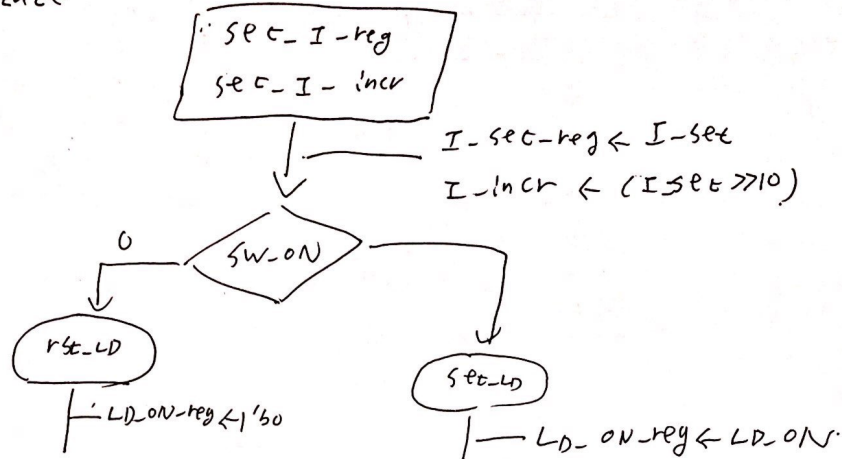 set_I-reg
set_I-incr
I-set-reg ← I-set
I-incr ← (Iset >>10)
0
SW-ON
rst-LD
set-LD
LD-ON-reg ← 1'b0
LD-ON-reg ← LD-ON.